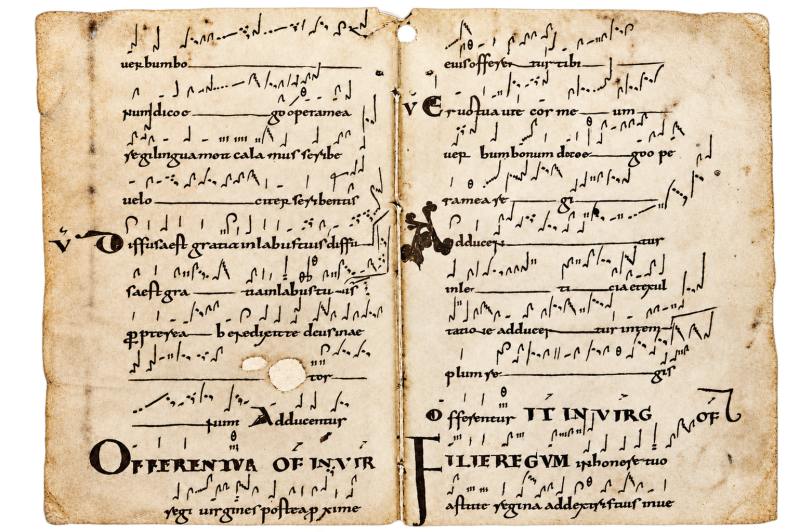 uerbumbo
num dico e go opera mea
regi lingua mea cala mus scribe
uelo citer scribentis
V Diffusa est gratia in labiis tuis diffu
sa est gra tia in labiis tu is
propterea benedixit te deus in ae
tor
num Adducentur
OFFERENTVR OF IN VIR
regi uirgines postea proxime
eius offerer tur tibi
V Eructuauit cor me um
uer bum bonum dico e go o pe
ra mea re gi
Adducen tur
in le ti cia et exul
tatio ne adducen tur in tem
plum re gis
Offerentur IT IN VIRG OF
FILIE REGVM in honore tuo
astitit regina a dextris tuis in ue